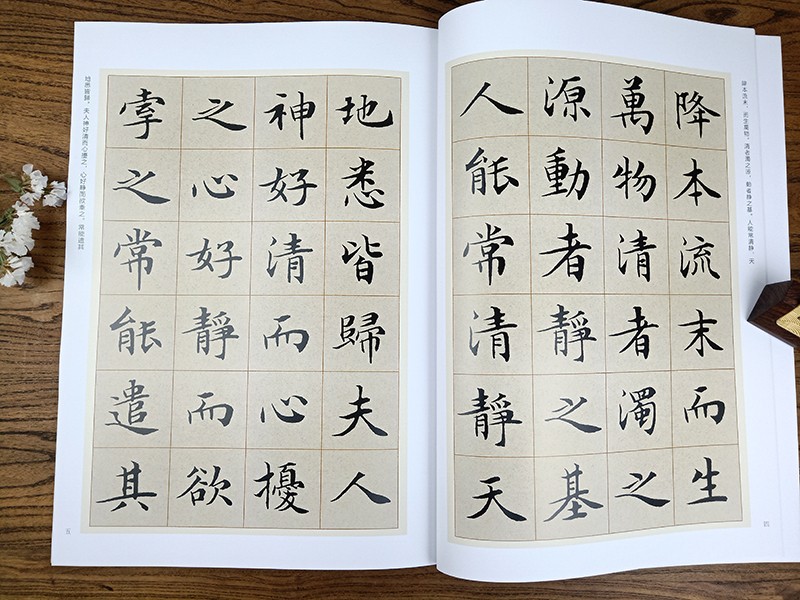 降本流末，而生萬物。清者濁之源，動者靜之基。人能常清靜，天
降本流末而生
萬物清者濁之
源動者靜之基
人能常清靜天
地悉皆歸夫人
神好清而心擾
之心好靜而欲
牽之常能遣其
地悉皆歸。夫人神好清而心擾之，心好靜而欲牽之。常能遣其